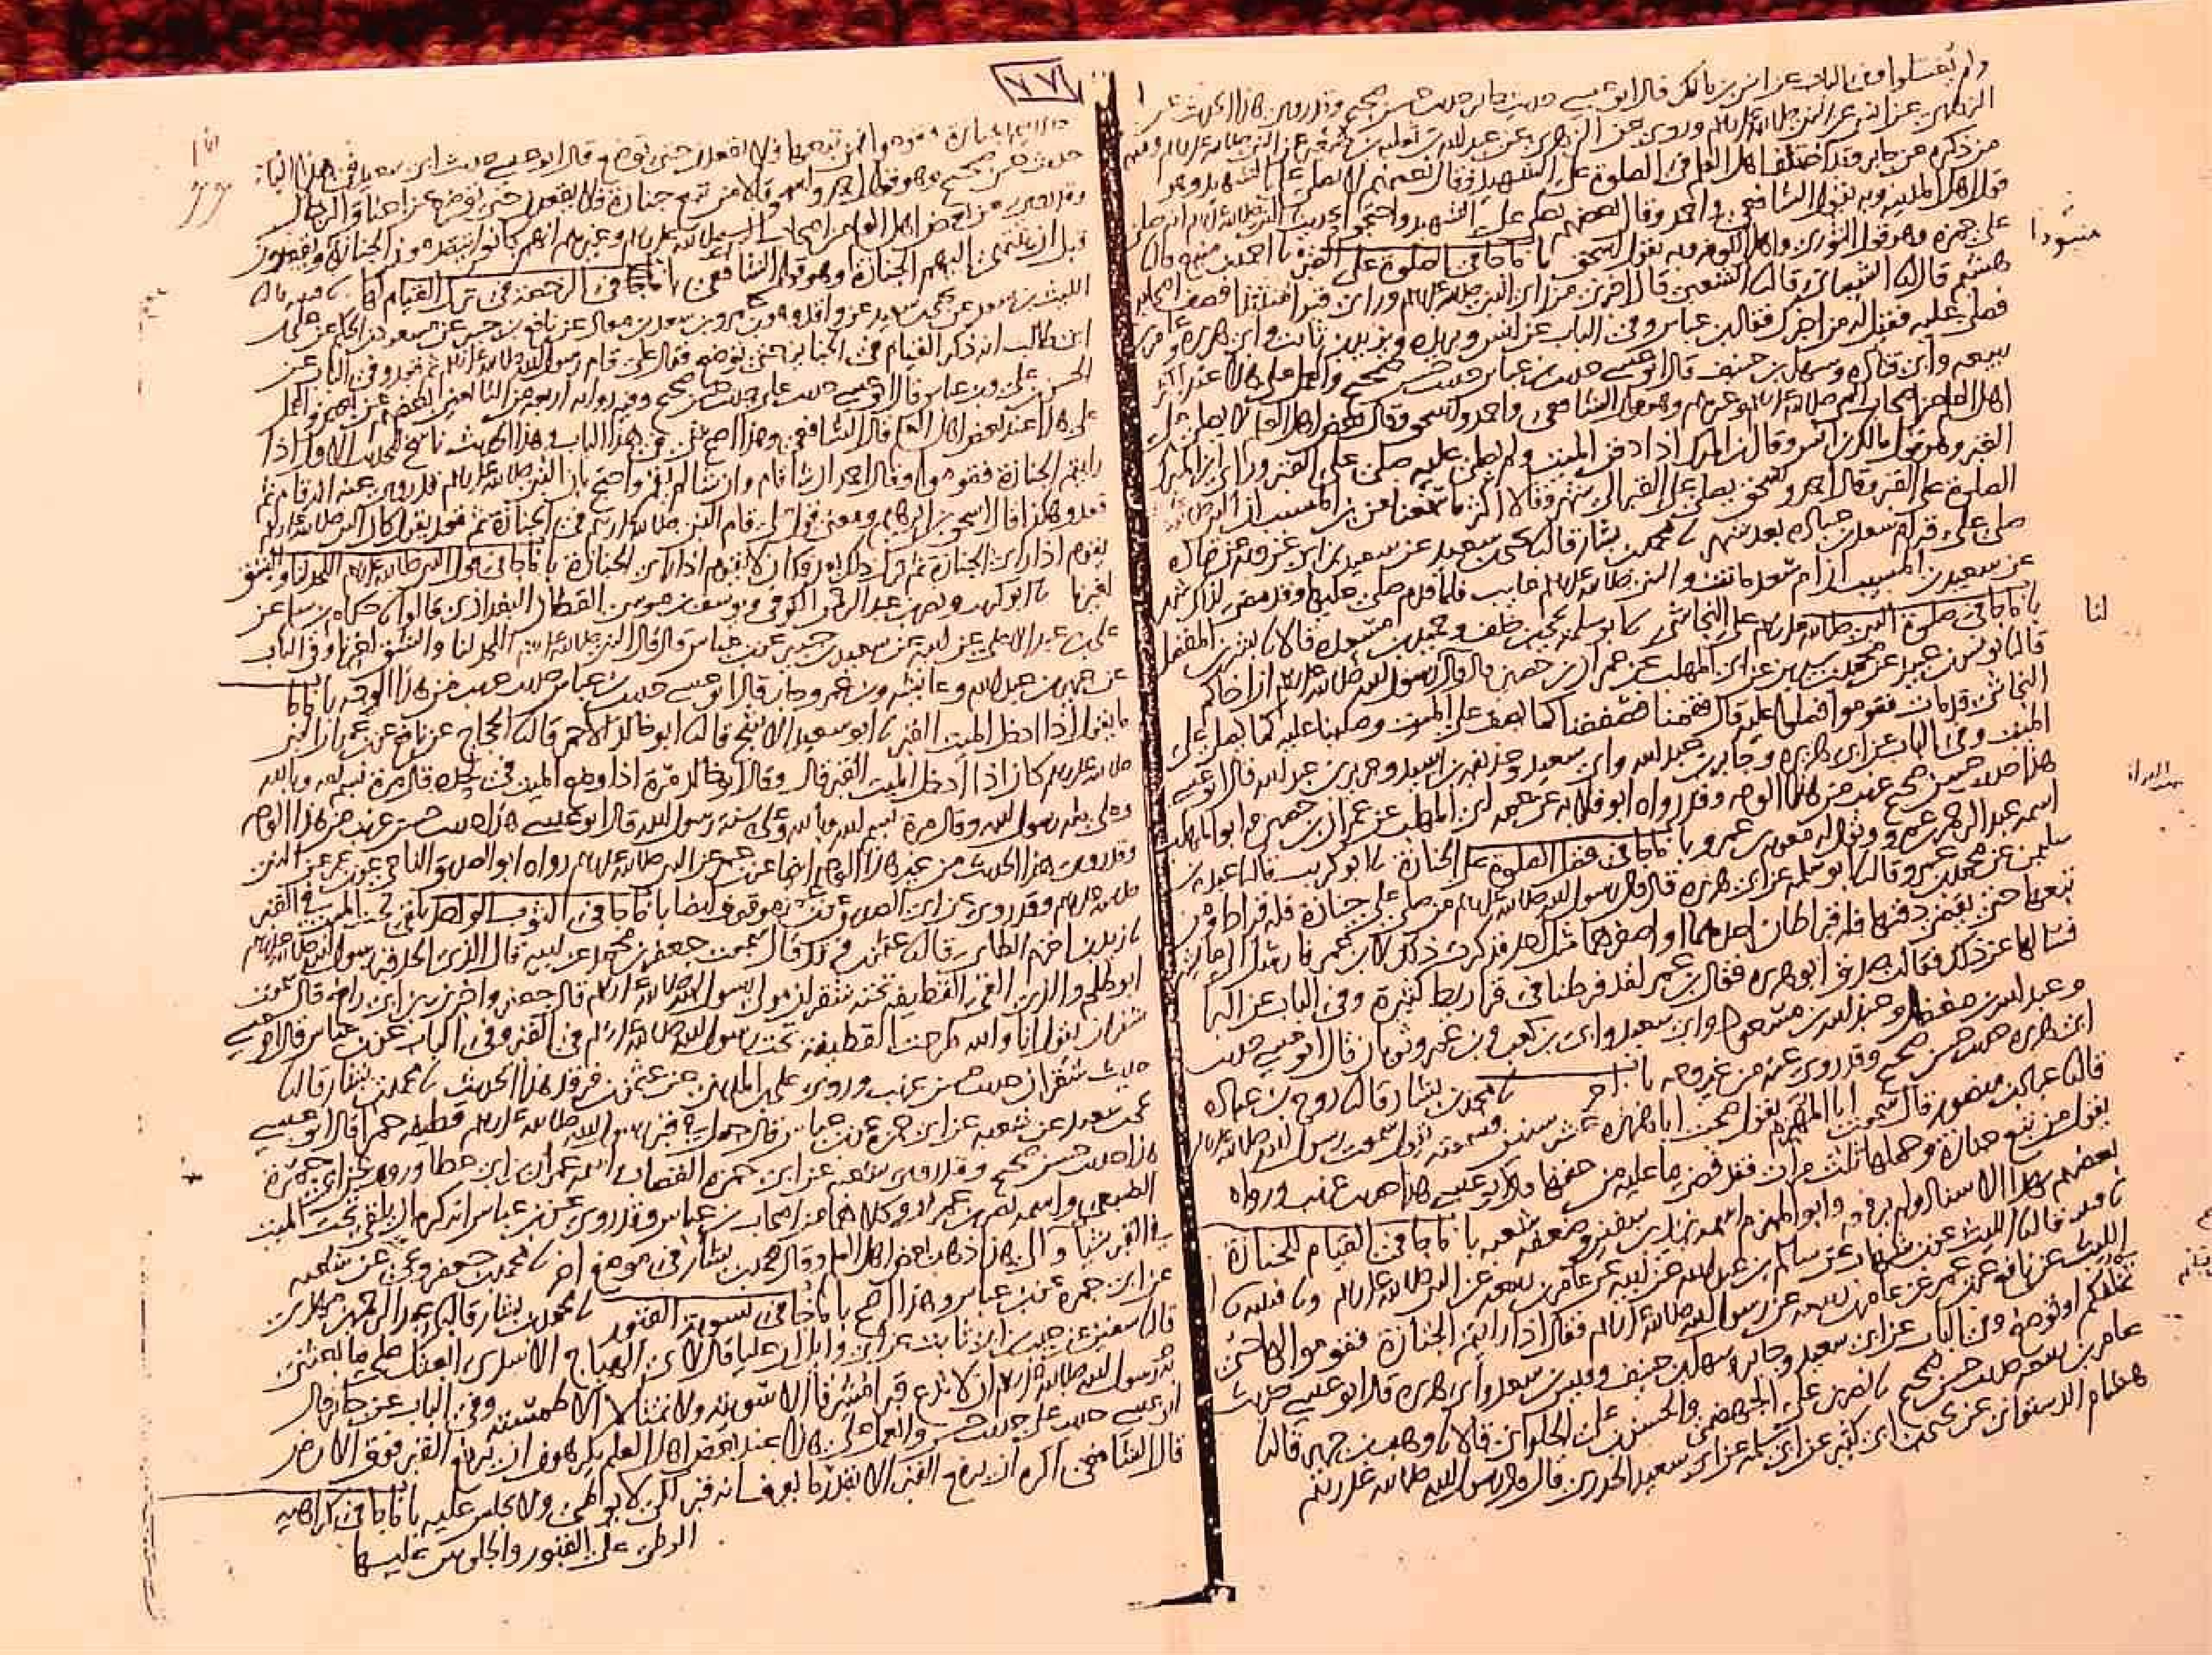 ولم يغسلوا وفي الباب عن انس بن مالك قال ابو عيسى حديث جابر حديث حسن صحيح وقد روي هذا الحديث عن
الزهري عن انس عن النبي صلى الله عليه وسلم وروي عن الزهري عن عبد الله بن ثعلبة بن
من ذكره عن جابر وقد اختلف اهل العلم في الصلوة على الشهيد فقال بعضهم لا يصلى على الشهيد وهو
قول اهل المدينة وبه يقول الشافعي واحمد وقال بعضهم يصلى على الشهيد واحتجوا بحديث النبي صلى الله عليه وسلم انه صلى
على حمزة وهو قول الثوري واهل الكوفة وبه يقول اسحق باب ما جا في الصلوة على القبر نا احمد بن منيع قال نا
هشيم قال نا الشيباني قال نا الشعبي قال اخبرني من راى النبي صلى الله عليه وسلم وراى قبرا منتبذا فصف اصحابه
فصلى عليه فقيل له من اخبرك فقال ابن عباس وفي الباب عن انس وبريدة ويزيد بن ثابت وابي هريرة وعامر بن
ربيعه وابي قتاده وسهل بن حنيف قال ابو عيسى حديث ابن عباس حديث حسن صحيح والعمل على هذا عند اكثر
اهل العلم من اصحاب النبي صلى الله عليه وسلم وغيرهم وهو قول الشافعي واحمد واسحق وقال بعض اهل العلم لا يصلى على
القبر وهو قول مالك بن انس وقال ابن المبرك اذا دفن الميت ولم يصل عليه صلى على القبر وراى ابن المبرك
الصلوة على القبر وقال احمد واسحق يصلى على القبر الى شهر وقالا اكثر ما سمعنا عن ابن المسيب ان النبي صلى الله
صلى على قبر ام سعد بن عباده بعد شهر نا محمد بن بشار قال نا يحيى بن سعيد عن سعيد بن ابي عروبه عن قتاده
عن سعيد بن المسيب ان ام سعد ماتت والنبي صلى الله عليه وسلم غايب فلما قدم صلى عليها وقد مضى لذلك شهر
باب ما جا في صلوة النبي صلى الله عليه وسلم على النجاشي نا ابو سلمه يحيى بن خلف وحميد بن مسعده قالا نا بشر بن المفضل
قال نا يونس بن عبيد عن محمد بن سيرين عن ابي المهلب عن عمران بن حصين قال قال رسول الله صلى الله عليه وسلم ان اخاكم
النجاشي قد مات فقوموا فصلوا عليه قال فقمنا فصففنا كما يصف على الميت وصلينا عليه كما يصلى على
الميت وفي الباب عن ابي هريره وجابر بن عبد الله وابي سعيد وحذيفه بن اسيد وجرير بن عبد الله قال ابو عيسى
هذا حديث حسن صحيح غريب من هذا الوجه وقد رواه ابو قلابه عن عمه ابي المهلب عن عمران بن حصين وابو المهلب
اسمه عبد الرحمن بن عمرو ويقال له معويه بن عمرو باب ما جا في فضل الصلوة على الجنازة نا ابو كريب قال نا عبده بن
سليمن عن محمد بن عمرو قال نا ابو سلمه عن ابي هريره قال قال رسول الله صلى الله عليه وسلم من صلى على جنازة فله قيراط ومن
تبعها حتى يقضى دفنها فله قيراطان احدهما او اصغرهما مثل احد فذكرت ذلك لابن عمر فارسل الى عايشه
فسالها عن ذلك فقالت صدق ابو هريره فقال ابن عمر لقد فرطنا في قراريط كثيرة وفي الباب عن البرا
وعبد الله بن مغفل وعبد الله بن مسعود وابي سعيد وابي بن كعب وبن عمر وثوبان قال ابو عيسى حديث
ابي هريره حديث حسن صحيح وقد روي عنه من غير وجه باب اخر نا محمد بن بشار قال نا روح بن عباده
قال نا عباد بن منصور قال سمعت ابا المهزم يقول صحبت ابا هريره عشر سنين فسمعته يقول سمعت رسول الله صلى الله عليه وسلم
يقول من تبع جنازة وحملها ثلث مرات فقد قضى ما عليه من حقها قال ابو عيسى هذا حديث غريب ورواه
بعضهم بهذا الاسناد ولم يرفعه وابو المهزم اسمه يزيد بن سفين وضعفه شعبه باب ما جا في القيام للجنازة
نا قتيبه قال نا الليث عن ابن شهاب عن سالم بن عبد الله عن ابيه عن عامر بن ربيعه عن النبي صلى الله عليه وسلم ونا قتيبه نا
الليث عن نافع عن ابن عمر عن عامر بن ربيعه عن رسول الله صلى الله عليه وسلم فقال اذا رايتم الجنازة فقوموا لها حتى
تخلفكم او توضع وفي الباب عن ابي سعيد وجابر وسهل بن حنيف وقيس بن سعد وابي هريره قال ابو عيسى حديث
عامر بن ربيعه حديث حسن صحيح نا نصر بن علي الجهضمي والحسن بن علي الحلواني قالا نا وهب بن جرير قال نا
هشام الدستوائي عن يحيى بن ابي كثير عن ابي سلمه عن ابي سعيد الخدري قال قال رسول الله صلى الله عليه اذا رايتم
منبوذا
لنا
٧٧
الجنازة فقوموا فمن تبعها فلا يقعدن حتى توضع قال ابو عيسى حديث ابي سعيد في هذا الباب
حديث حسن صحيح وهو قول احمد واسحق قالا من تبع جنازة فلا يقعدن حتى توضع عن اعناق الرجال
وقد روي عن بعض اهل العلم من اصحاب النبي صلى الله عليه وسلم وغيرهم انهم كانوا يتقدمون الجنازة ويقعدون
قبل ان تنتهي اليهم الجنازة وهو قول الشافعي باب ما جا في الرخصة في ترك القيام لها نا قتيبه قال نا
الليث بن سعد عن يحيى بن سعيد عن واقد وهو بن عمرو بن سعد بن معاذ عن نافع بن جبير عن مسعود بن الحكم عن علي
ابن ابي طالب انه ذكر القيام في الجنايز حتى توضع فقال علي قام رسول الله صلى الله عليه وسلم ثم قعد وفي الباب عن
الحسن بن علي وبن عباس قال ابو عيسى حديث علي حديث حسن صحيح وفيه رواية اربعة من التابعين بعضهم عن بعض والعمل
على هذا عند بعض اهل العلم قال الشافعي وهذا اصح شي في هذا الباب وهذا الحديث ناسخ للحديث الاول اذا
رايتم الجنازة فقوموا وقال احمد ان شا قام وان شا لم يقم واحتج بان النبي صلى الله عليه وسلم قد روي عنه انه قام ثم
قعد وهكذا قال اسحق بن ابرهيم ومعنى قول علي قام النبي صلى الله عليه وسلم في الجنازة ثم قعد يقول كان النبي صلى الله عليه وسلم
يقوم اذا راى الجنازة ثم ترك ذلك بعد فكان لا يقوم اذا راى الجنازة باب ما جا في قول النبي صلى الله عليه وسلم اللحد لنا والشق
لغيرنا نا ابو كريب ونصر بن عبد الرحمن الكوفي ويوسف بن موسى القطان البغدادي قالوا نا حكام بن سلم عن
علي بن عبد الاعلى عن ابيه عن سعيد بن جبير عن ابن عباس قال قال النبي صلى الله عليه وسلم اللحد لنا والشق لغيرنا وفي الباب
عن جرير بن عبد الله وعايشه وبن عمر وجابر قال ابو عيسى حديث ابن عباس حديث غريب من هذا الوجه باب ما جا
ما يقول اذا ادخل الميت القبر نا ابو سعيد الاشج قال نا ابو خالد الاحمر قال نا الحجاج عن نافع عن ابن عمر ان النبي
صلى الله عليه وسلم كان اذا ادخل الميت القبر قال وقال ابو خالد مرة اذا وضع الميت في لحده قال مرة بسم الله وبالله
وعلى ملة رسول الله وقال مرة بسم الله وبالله وعلى سنة رسول الله قال ابو عيسى هذا حديث حسن غريب من هذا الوجه
وقد روي هذا الحديث من غير هذا الوجه ايضا عن ابن عمر عن النبي صلى الله عليه وسلم رواه ابو الصديق الناجي عن ابن عمر عن النبي
صلى الله عليه وسلم وقد روي عن ابي الصديق عن ابن عمر موقوف ايضا باب ما جا في الثوب الواحد يلقى تحت الميت في القبر
نا زيد بن اخزم الطائي قال نا عثمن بن فرقد قال سمعت جعفر بن محمد عن ابيه قال الذي الحد قبر رسول الله صلى الله عليه وسلم
ابو طلحه والذي القى القطيفه تحته شقران مولى رسول الله صلى الله عليه وسلم قال جعفر واخبرني ابن ابي رافع قال سمعت
شقران يقول انا والله طرحت القطيفة تحت رسول الله صلى الله عليه وسلم في القبر وفي الباب عن ابن عباس قال ابو عيسى
حديث شقران حديث حسن غريب وروى علي بن المديني عن عثمن بن فرقد هذا الحديث نا محمد بن بشار قال نا
يحيى بن سعيد عن شعبه عن ابي جمرة عن ابن عباس قال جعل في قبر رسول الله صلى الله عليه وسلم قطيفه حمرا قال ابو عيسى
هذا حديث حسن صحيح وقد روى شعبه عن ابي حمزه القصاب واسمه عمران بن ابي عطا وروى عن ابي جمرة
الضبعي واسمه نصر بن عمران وكلاهما من اصحاب ابن عباس وقد روي عن ابن عباس انه كره ان يلقى تحت الميت
في القبر شيا والى هذا ذهب بعض اهل العلم وقال محمد بن بشار في موضع اخر نا محمد بن جعفر ويحيى عن شعبه
عن ابي جمرة عن ابن عباس وهذا اصح باب ما جا في تسوية القبور نا محمد بن بشار قال نا عبد الرحمن بن مهدي نا
قال نا سفين عن حبيب بن ابي ثابت عن ابي وايل ان عليا قال لابي الهياج الاسدي ابعثك على ما بعثني
به رسول الله صلى الله عليه وسلم ان لا تدع قبرا مشرفا الا سويته ولا تمثالا الا طمسته وفي الباب عن جابر قال
ابو عيسى حديث علي حديث حسن والعمل على هذا عند بعض اهل العلم يكرهون ان يرفع القبر فوق الارض
قال الشافعي اكره ان يرفع القبر الا بقدر ما يعرف انه قبر لكي لا يوطى ولا يجلس عليه باب ما جا في كراهيه
الوطى على القبور والجلوس عليها